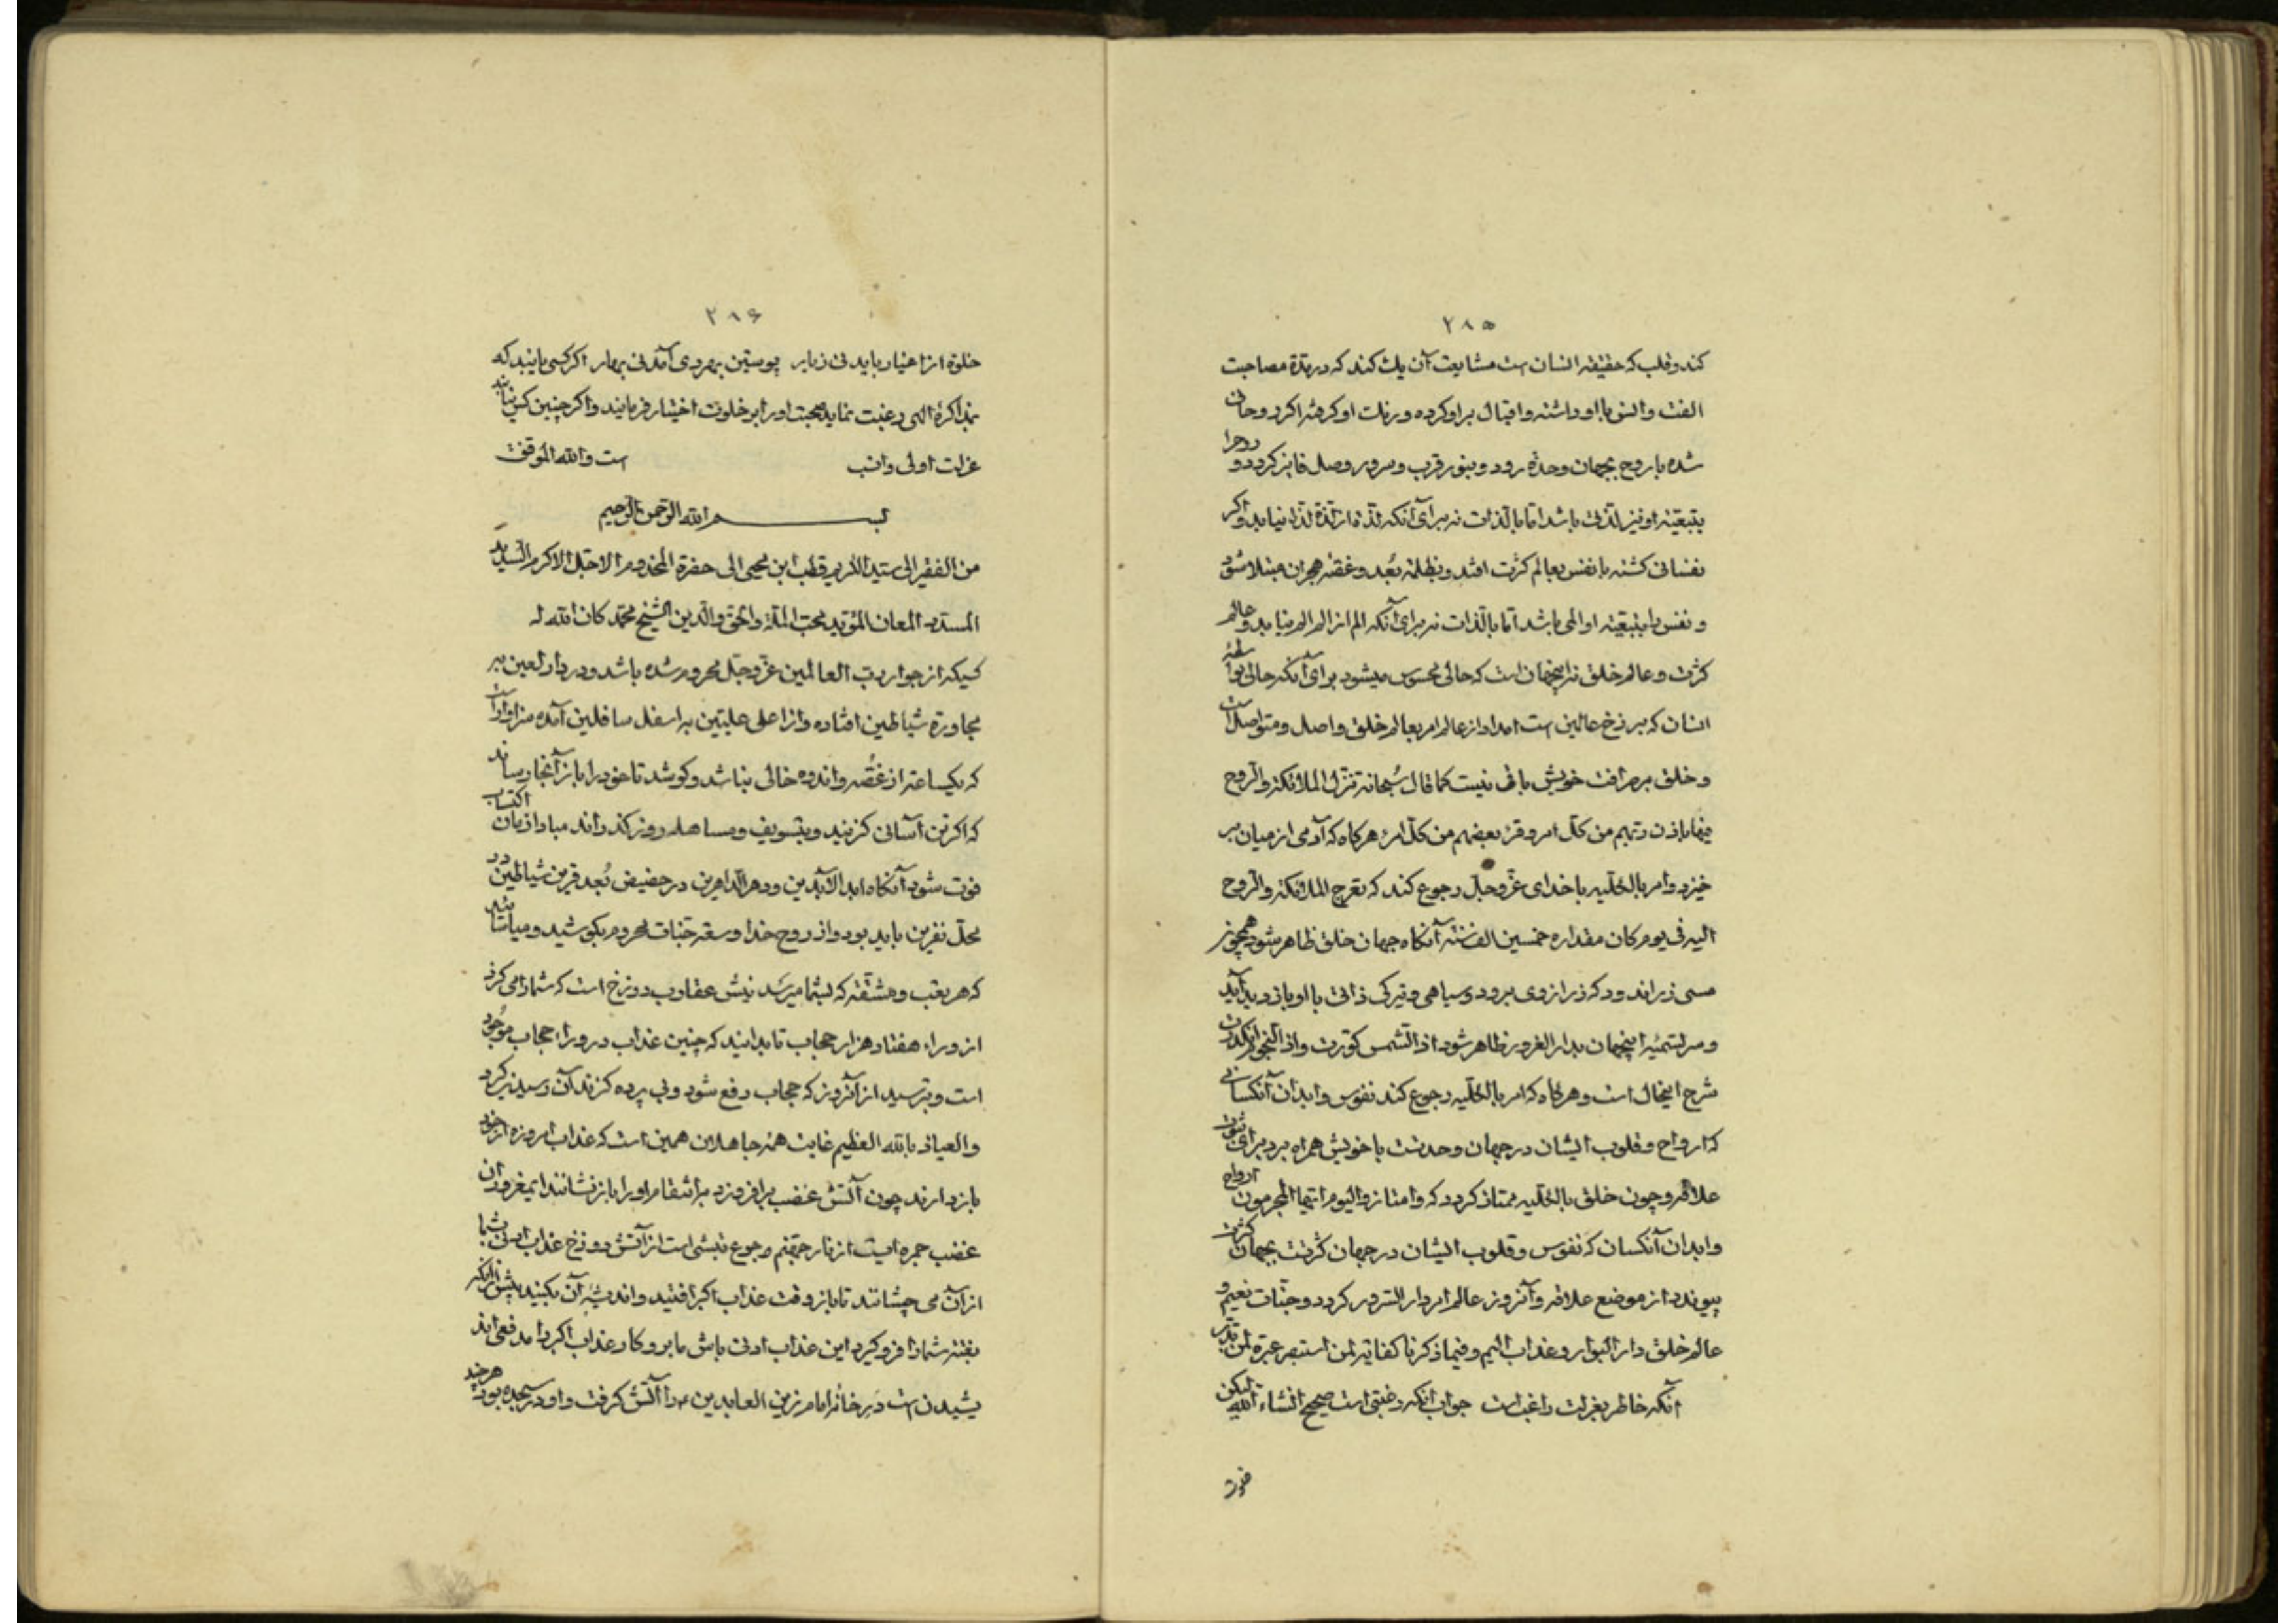 ۲۸۵
کند و قلب که حقیقة انسان است مشایعت آن یک کند که در مدة مصاحبت
الفت و انس با او داشته و اقبال بر او کرده و رنک او کرفته اکر روحانی
شده با روح بجهان وحدة رود و بنور قرب و سرور وصل فایز کردد و روح را
بتبعیة او نیز لذتی باشد اما بالذات نه برای آنکه لذة از لذة لذة نیابد و اکر
نفسانی کشته با نفس بعالم کثرت افتد و بظلمة بُعد و غصّه هجران مبتلا شود
و نفس را بتبعیة او المی باشد اما بالذات نه برای آنکه الم از الم الم نیابد و عالم
کثرت و عالم خلق نه اینجهان است که حالی محسوس میشود برای آنکه حالی بواسطهٔ
انسان که برزخ عالمین است امداد از عالم امر بعالم خلق واصل و متواصل است
و خلق بر صرافت خویش باقی نیست کما قال سُبحانه تنزّل الملائکة والرّوح
فیها باذن ربّهم من کلّ امر و قرء بعضهم من کلّ امرء هرکاه که آدمی از میان بر
خیزد و امر بالکلّیه با خدای عزّ و جلّ رجوع کند که تعرج الملائکة والرّوح
الیه فی یوم کان مقداره خمسین الف سنة آنکاه جهان خلق ظاهر شود همچون
مسی زراندود که زر از وی برود و سیاهی و تیرکی ذاتی با او بازدید آید
و سرّ تسمیهٔ اینجهان بدار الغرور ظاهر شود اذا الشّمس کوّرت و اذا النجوم انکدرت
شرح اینحال است و هرکاه که امر بالکلّیه رجوع کند نفوس و ابدان آنکسانی
که ارواح و قلوب ایشان در جهان وحدتست با خویش همراه برد برای ثبوت
علاقه و چون خلق بالکلّیه ممتاز کردد که وامتازوا الیوم ایّها المجرمون ارواح
و ابدان آنکسان که نفوس و قلوب ایشان در جهان کثرتست بجهان کثرت
پیوندد از موضع علاقه و آنروز عالم امر دار السّرور کردد و جنّات نعیم و
عالم خلق دار البوار و عذاب الیم و فیما ذکرنا کفایة لمن استبصر عبرة لمن تدبّر
آنکه خاطر بعزلت راغب است جواب آنکه رغبتی است صحیح انشاء الله لیکن
۲۸۶
خلوة از اغیار باید نی ز یار پوستین بهر دی آمد نی بهار اکر کسی یابند که
بمذاکرهٔ الهی رغبت نماید صحبت او را بر خلوت اختیار فرمایند و اکر چنین کس نیابند
عزلت اولی و انسب است والله الموفّق
بسم الله الرّحمن الرّحیم
من الفقیر الی سیّده الکریم قطب ابن محیی الی حضرة المخدوم الاجلّ الاکرم السّدید
المسدّد المعان المؤیّد محبّ الملّة والحق والدّین الشّیخ محمّد کان الله له
کسیکه از جوار ربّ العالمین عزّ و جلّ محروم شده باشد و در دار لعین به
مجاورة شیاطین افتاده و از اعلی علیّین به اسفل سافلین آمده سزاوار آنست
که یکساعة از غصّه و اندوه خالی نباشد و کوشد تا خود را باز آنجا رساند
که اکر تن آسانی کزیند و بتسویف و مساهله روز کذراند مبادا زمان اکتساب
فوت شود آنکاه ابد الآبدین و دهر الدّاهرین در حضیض بُعد قرین شیاطین در
محلّ نفرین باید بود و از روح خدا و سعة جنّات محروم بکوشید و میباشید
که هر تعب و مشقّة که بشما میرسد نیش عقارب دوزخ است که شما را می کزد
از وراء هفتاد هزار حجاب تا بدانید که چنین عذاب در وراء حجاب موجود
است و بترسید از آنروز که حجاب رفع شود و بی پرده کزند آن رسیدن کیرد
والعیاذ بالله العظیم غایت همّ جاهلان همین است که عذاب امروزه از خود
بازدارند چون آتش غضب برافروزد بر انتقام او را باز نشانند ایمغروران
غضب جمره ایست از نار جهنّم و جوع تبشی است از آتش دوزخ عذاب ادنی بشما
از آن می چشانند تا باز وقت عذاب اکبر افتید و اندیشهٔ آن بکنید پیش از آنکه
بغتة شما را فرو کیرد این عذاب ادنی باش ما برو کار عذاب اکبر را مدفعی اند
یشیدن است در خانهٔ امام زین العابدین ع را آتش کرفت و او در سجده بود هرچند